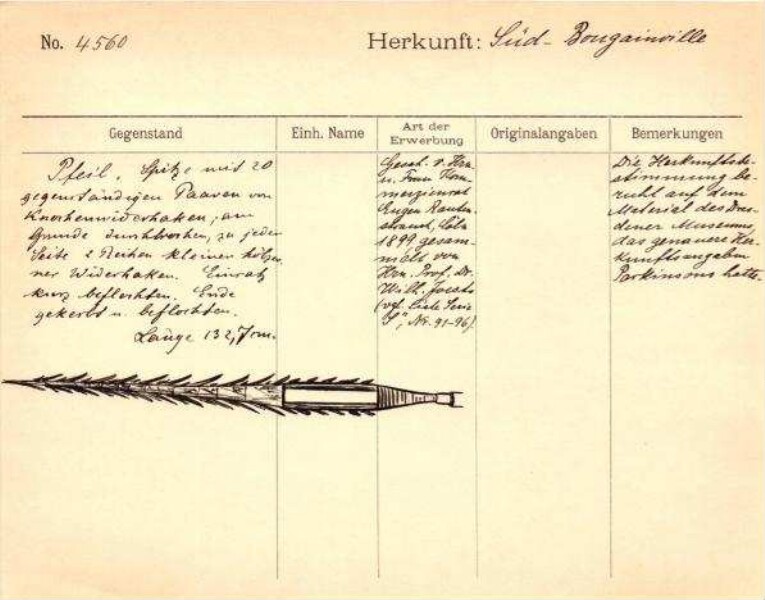 No. 4560
Herkunft: Süd-Bougainville
Gegenstand
Einh. Name
Art der Erwerbung
Originalangaben
Bemerkungen
Pfeil. Spitze mit 20
gegenständigen Paaren von
Knochenwiderhaken; am
Grunde durchbrochen, zu jeder
Seite 2 Reihen kleiner hölzer-
ner Widerhaken. Einsatz
kurz beflochten. Ende
gekerbt u. beflochten.
Länge 132,7 cm.
Gesch. v. Hrn.
u. Frau Kom-
merzienrat
Eugen Rauten-
strauch, Cöln
1899 gesam-
melt von
Hrn. Prof. Dr.
Wilh. Joest
(vgl. Liste Serie
"S", Nr. 91-96)
Die Herkunftsbe-
stimmung be-
ruht auf dem
Material des Dres-
dener Museums,
das genauere Her-
kunftsangaben
Parkinsons hatte.